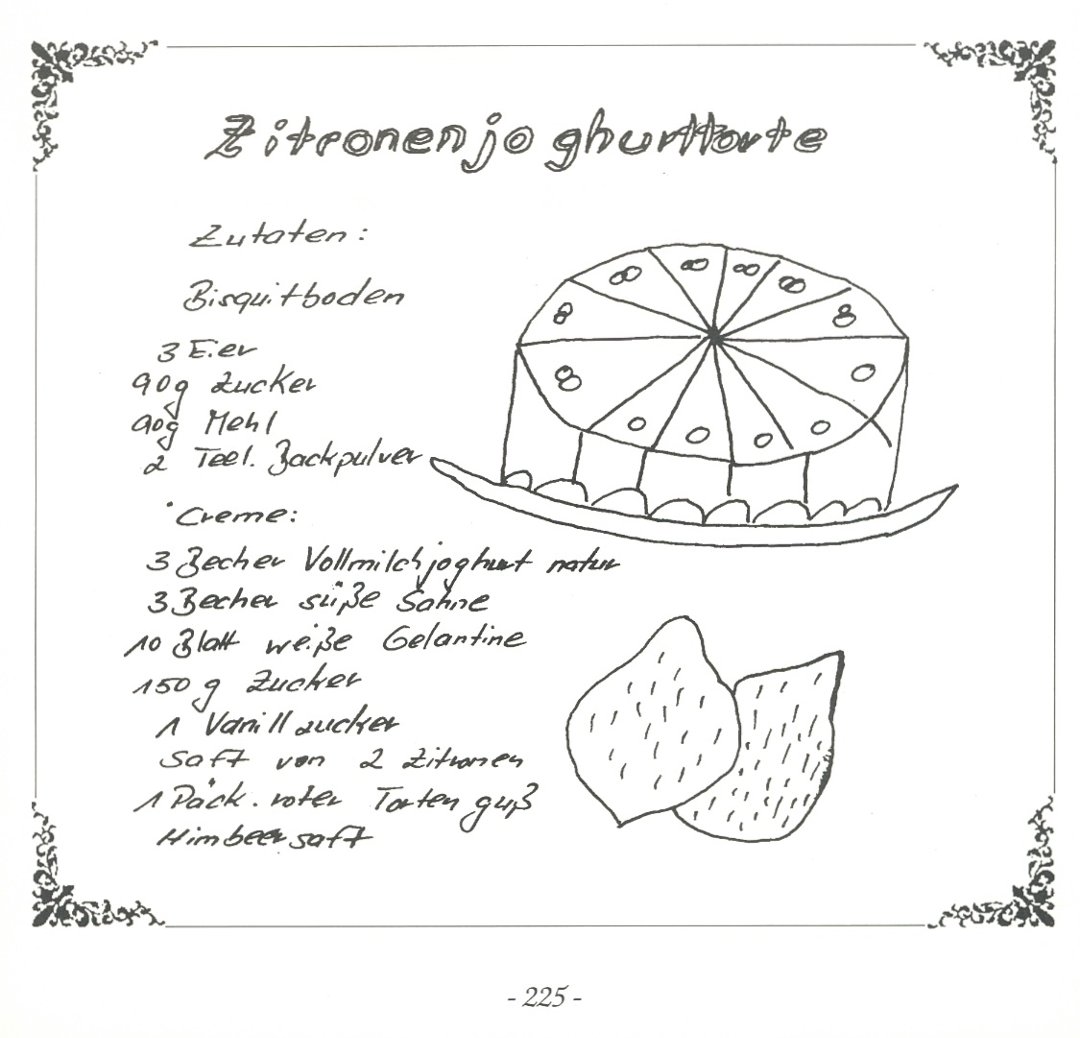 Zitronenjoghurttorte
Zutaten:
Bisquitboden
3 Eier
90g Zucker
90g Mehl
2 Teel. Backpulver
Creme:
3 Becher Vollmilchjoghurt natur
3 Becher süße Sahne
10 Blatt weiße Gelantine
150 g Zucker
1 Vanillzucker
Saft von 2 Zitronen
1 Päck. roter Tortenguß
Himbeersaft
- 225 -